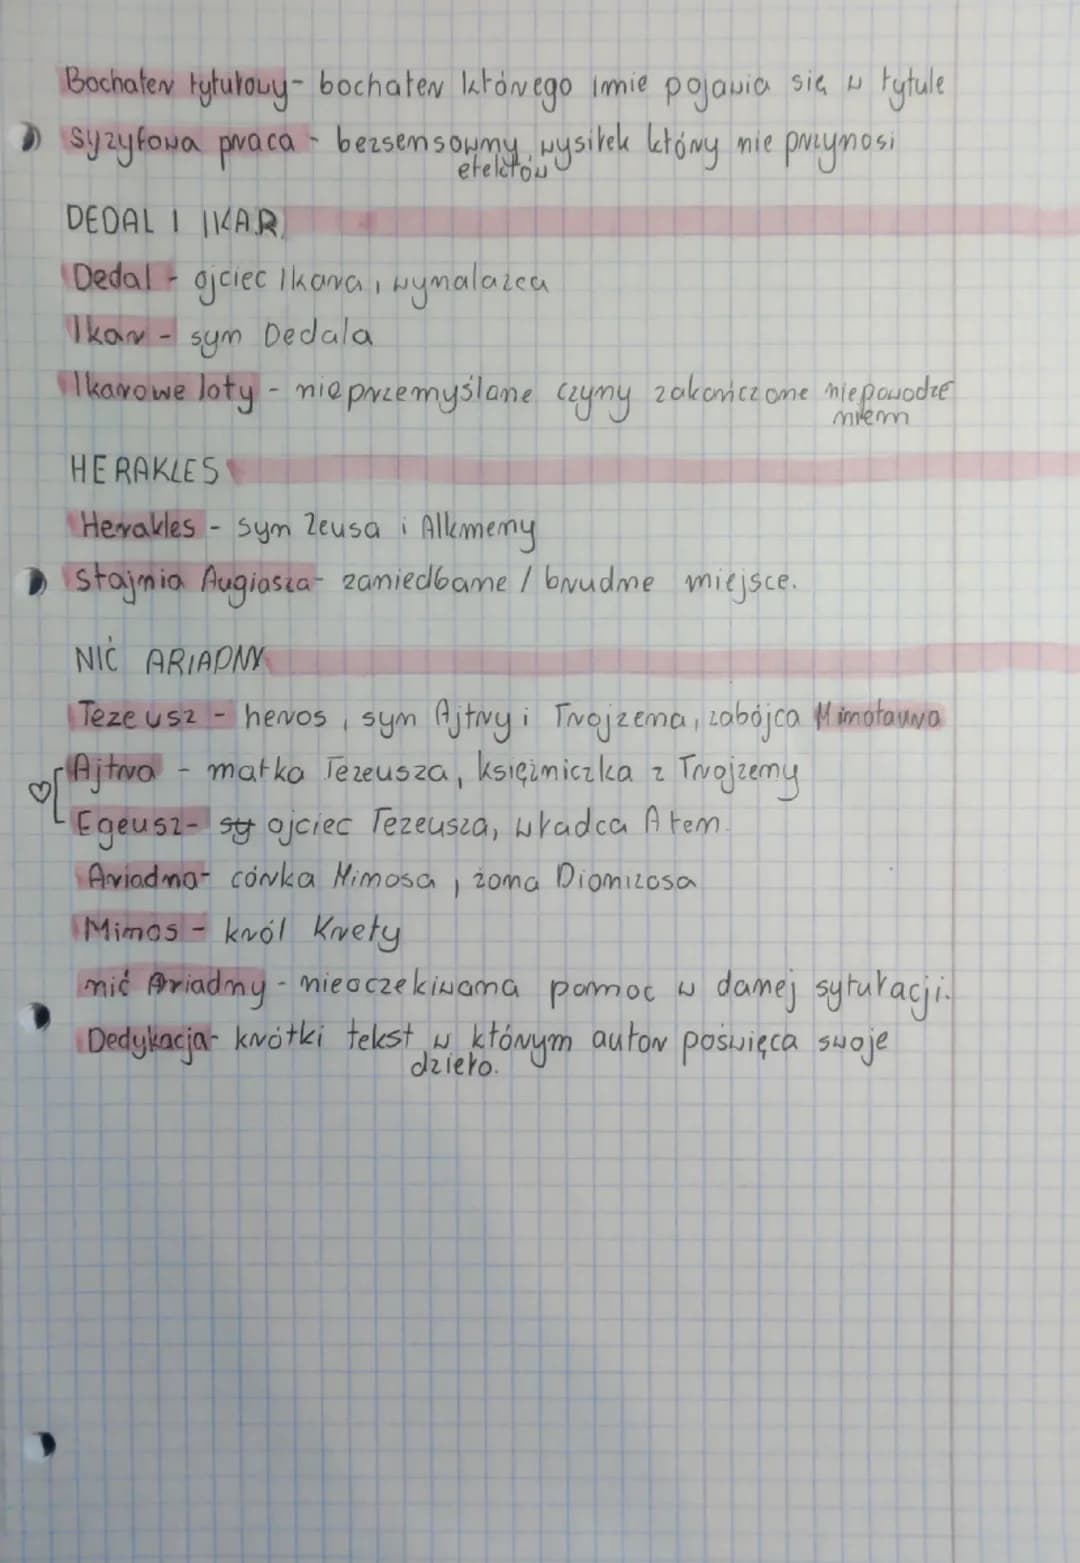 Bochater tytułowy - bochater którego imie pojawia się w tytule
syzyfowa praca - bezsensowny wysiłek który nie przynosi
efektów
DEDAL I IKAR
Dedal - ojciec Ikara, wynalazca
Ikar - syn Dedala
Ikarowe loty - nieprzemyślane czyny zakończone niepowodze
niem
HERAKLES
Herakles - syn Zeusa i Alkmeny
stajnia Augiasza - zaniedbane / brudne miejsce.
NIĆ ARIADNY
Tezeusz - heros, syn Ajtry i Trojzena, zabójca Minotaura
Ajtra - matka Tezeusza, księżniczka z Trojzemy
Egeusz - sy ojciec Tezeusza, władca Aten.
Ariadna - córka Minosa, żona Dionizosa
Minos - król Krety
nić Ariadny - nieoczekiwana pomoc w danej syturacji.
Dedykacja - krótki tekst w którym autor poświęca swoje
dzieło.